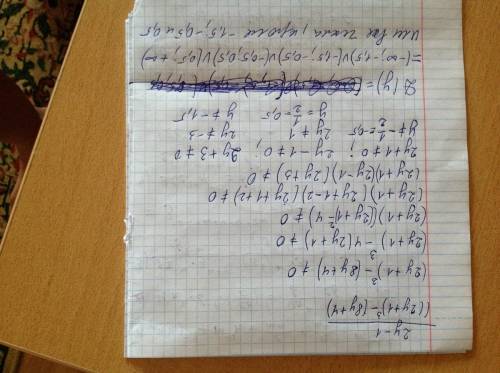 2y-1
((2y+1)³-(8y+4)
(2y+1)³-(8y+4) ≠ 0
(2y+1)³-4(2y+1) ≠ 0
(2y+1)((2y+1)²-4) ≠ 0
(2y+1)(2y+1-2)(2y+1+2) ≠ 0
(2y+1)(2y-1)(2y+3) ≠ 0
2y+1≠0; 2y-1≠0; 2y+3≠0
y≠-1/2=-0,5 2y≠1 2y≠-3
y=1/2=0,5 y≠-1,5
D(y)=
=(-∞; -1,5)∨(-1,5; -0,5)∨(-0,5; 0,5)∨(0,5; +∞)
или все числа, кроме -1,5; -0,5 и 0,5